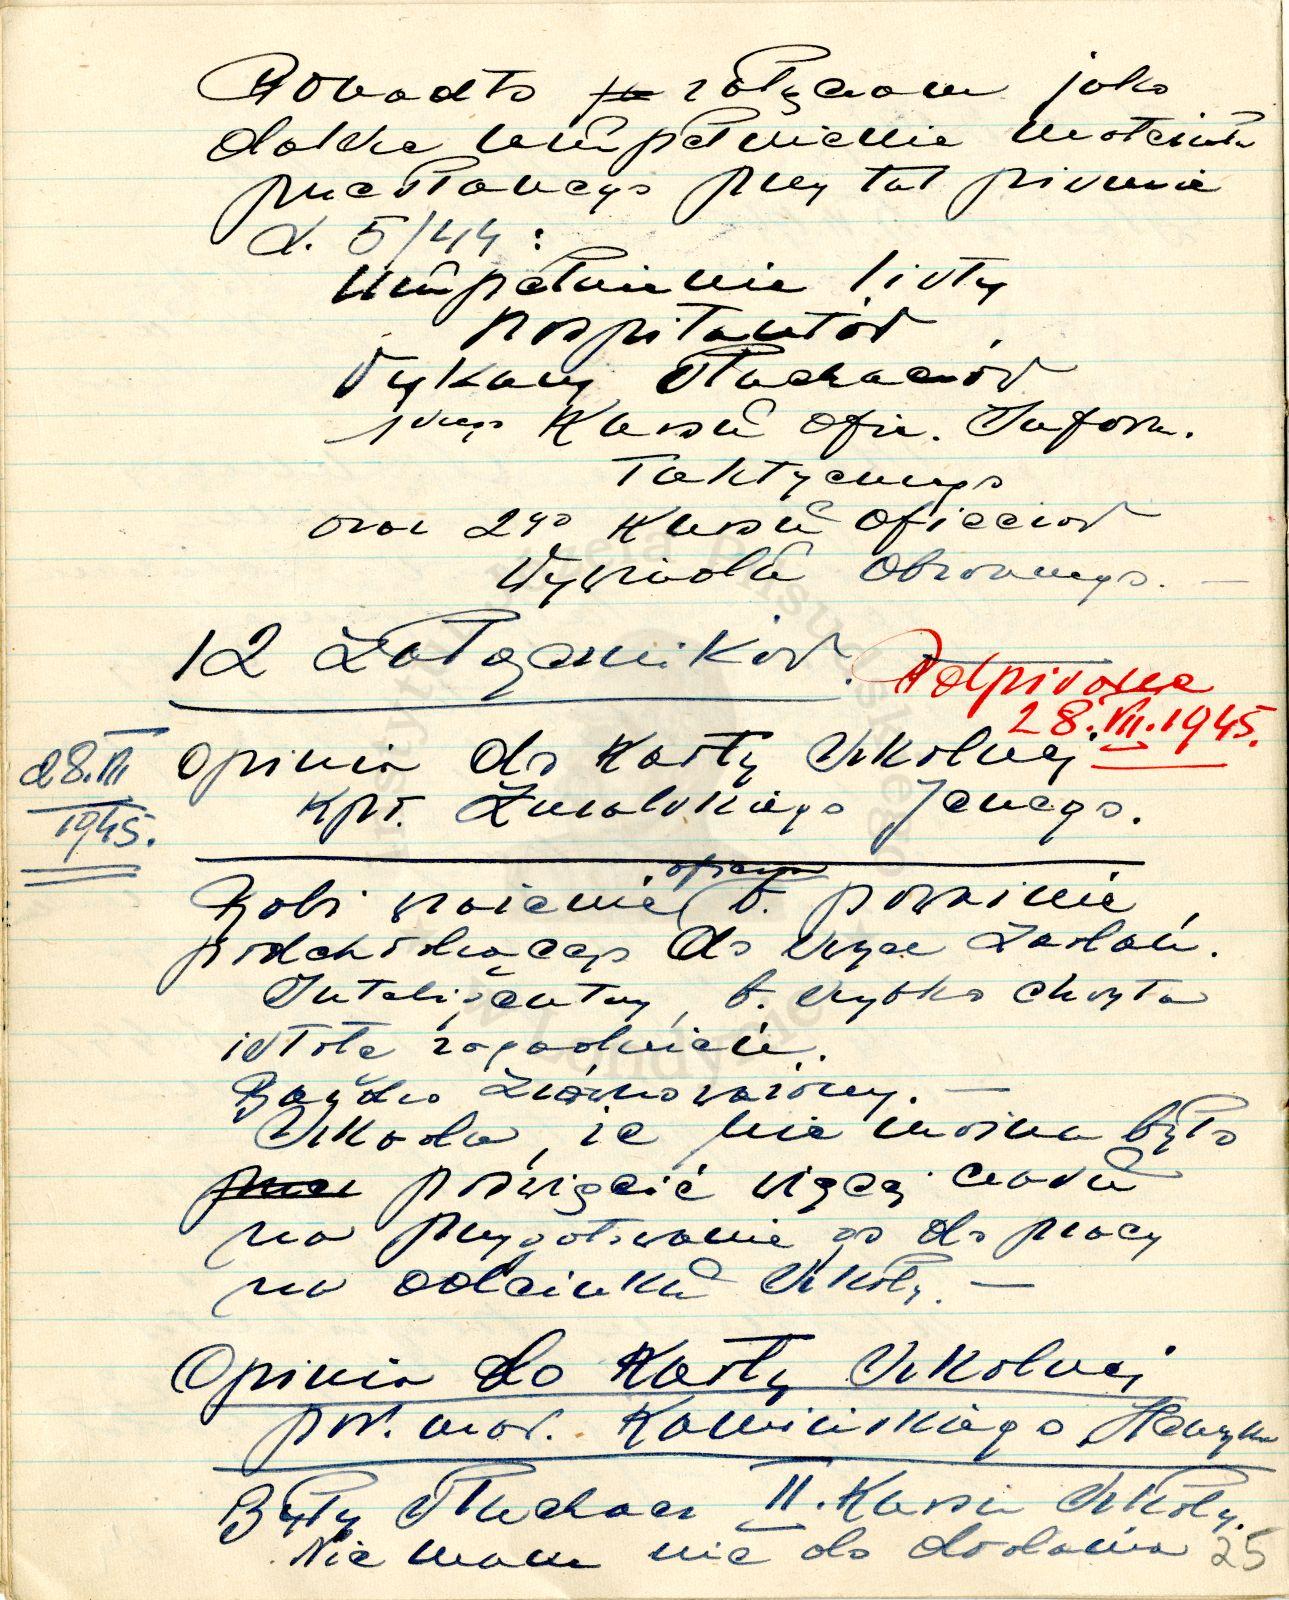 Ponadto załączam jako
dalsze uzupełnienie materiału
przesłanego przy tut. piśmie
L. 5/44:
Uzupełnienie listy
hospitantów,
Wykazy słuchaczów
Kursu Ofic. Inform.
Taktycznego
oraz 2go Kursu Oficerów
Wywiadu Obronnego. —
12 załączników.
Odpisane
28.VII.1945.
28.VII
1945.
Opinia do Karty Szkolnej
kpt. Żmalskiego Jerzego.
Robi wrażenie oficera b. poważnie
podchodzącego do swych zadań.
Inteligentny, b. szybko chwyta
istotę zagadnień.
Bardzo zrównoważony. —
Szkoda, że nie można było
poświęcić więcej czasu
na przygotowanie go do pracy
na odcinku Szkoły. —
Opinia do Karty Szkolnej
por. mar. Kamińskiego Henryka
Były słuchacz II. Kursu Szkoły.
Nie mam nic do dodania
25
Instytut Józefa Piłsudskiego
w Londynie